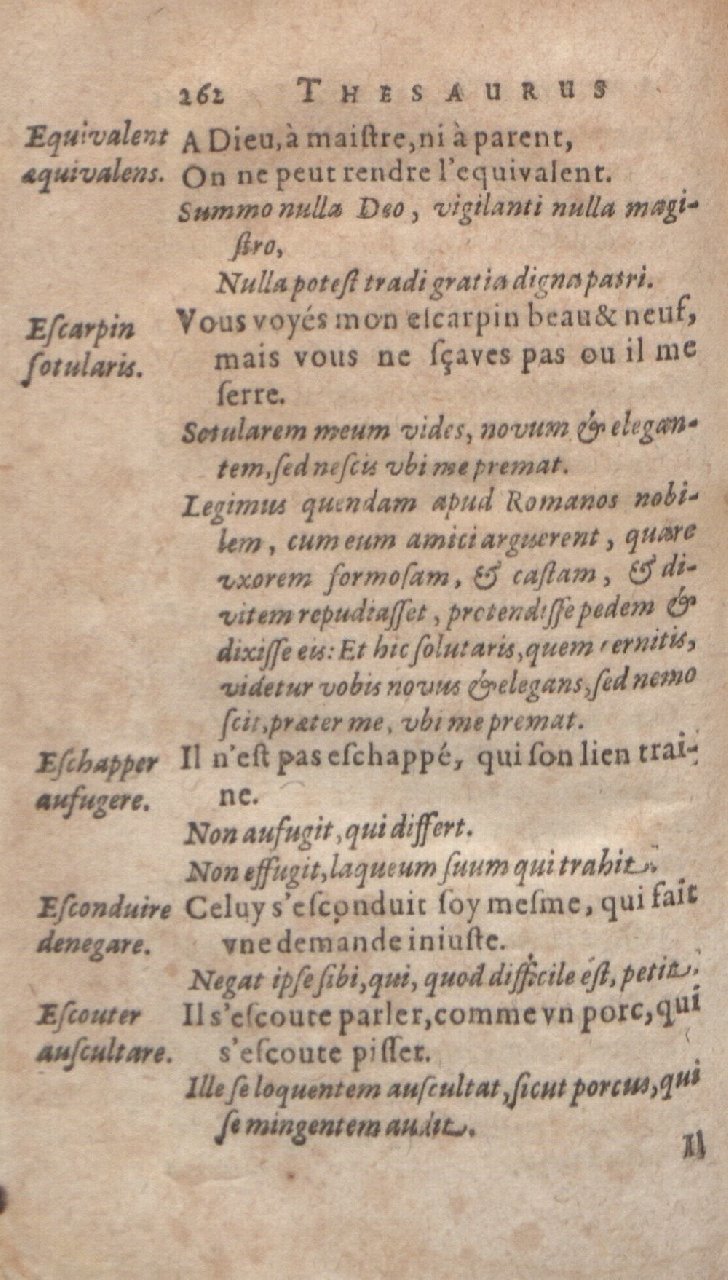 262 THESAURUS
Equivalent
æquivalens.
A Dieu, à maiſtre, ni à parent,
On ne peut rendre l'equivalent.
Summo nulla Deo, vigilanti nulla magi-
ſtro,
Nulla poteſt tradi gratia digna patri.
Eſcarpin
ſotularis.
Vous voyés mon eſcarpin beau & neuf,
mais vous ne ſçaves pas ou il me
ſerre.
Sotularem meum vides, novum & elegan-
tem, ſed neſcis vbi me premat.
Legimus quendam apud Romanos nobi-
lem, cum eum amici arguerent, quare
vxorem formoſam, & caſtam, & di-
vitem repudiaſſet, protendiſſe pedem &
dixiſſe eis: Et hic ſolutaris, quem cernitis,
videtur vobis novus & elegans, ſed nemo
ſcit, præter me, vbi me premat.
Eſchapper
aufugere.
Il n'eſt pas eſchappé, qui ſon lien trai-
ne.
Non aufugit, qui differt.
Non effugit, laqueum ſuum qui trahit.
Eſconduire
denegare.
Celuy s'eſconduit ſoy meſme, qui fait
vne demande iniuſte.
Negat ipſe ſibi, qui, quod difficile eſt, petit.
Eſcouter
auſcultare.
Il s'eſcoute parler, comme vn porc, qui
s'eſcoute piſſer.
Ille ſe loquentem auſcultat, ſicut porcus, qui
ſe mingentem audit.
Il